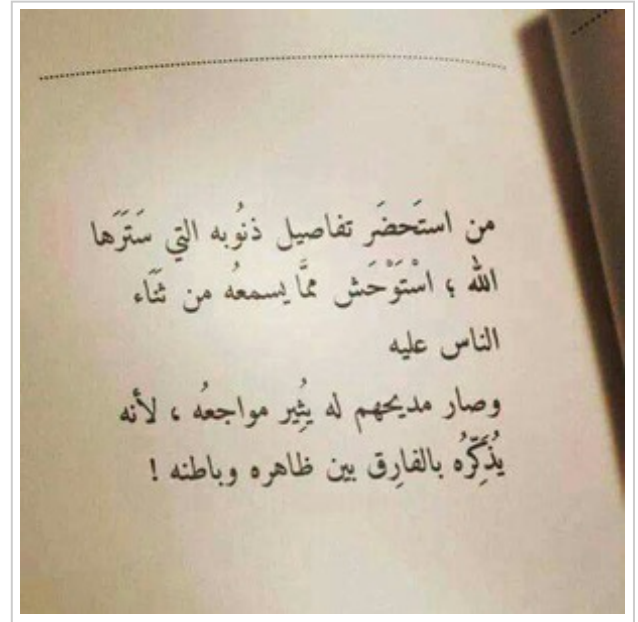 من استَحضَر تفاصيل ذنُوبه التي سَتَرَها
الله ؛ اسْتَوْحَش ممَّا يسمعهُ من ثَنَاء
الناس عليه
وصار مديحهم له يُثِير مواجعُه ، لأنه
يُذَكِّرُه بالفارِق بين ظاهره وباطنه !